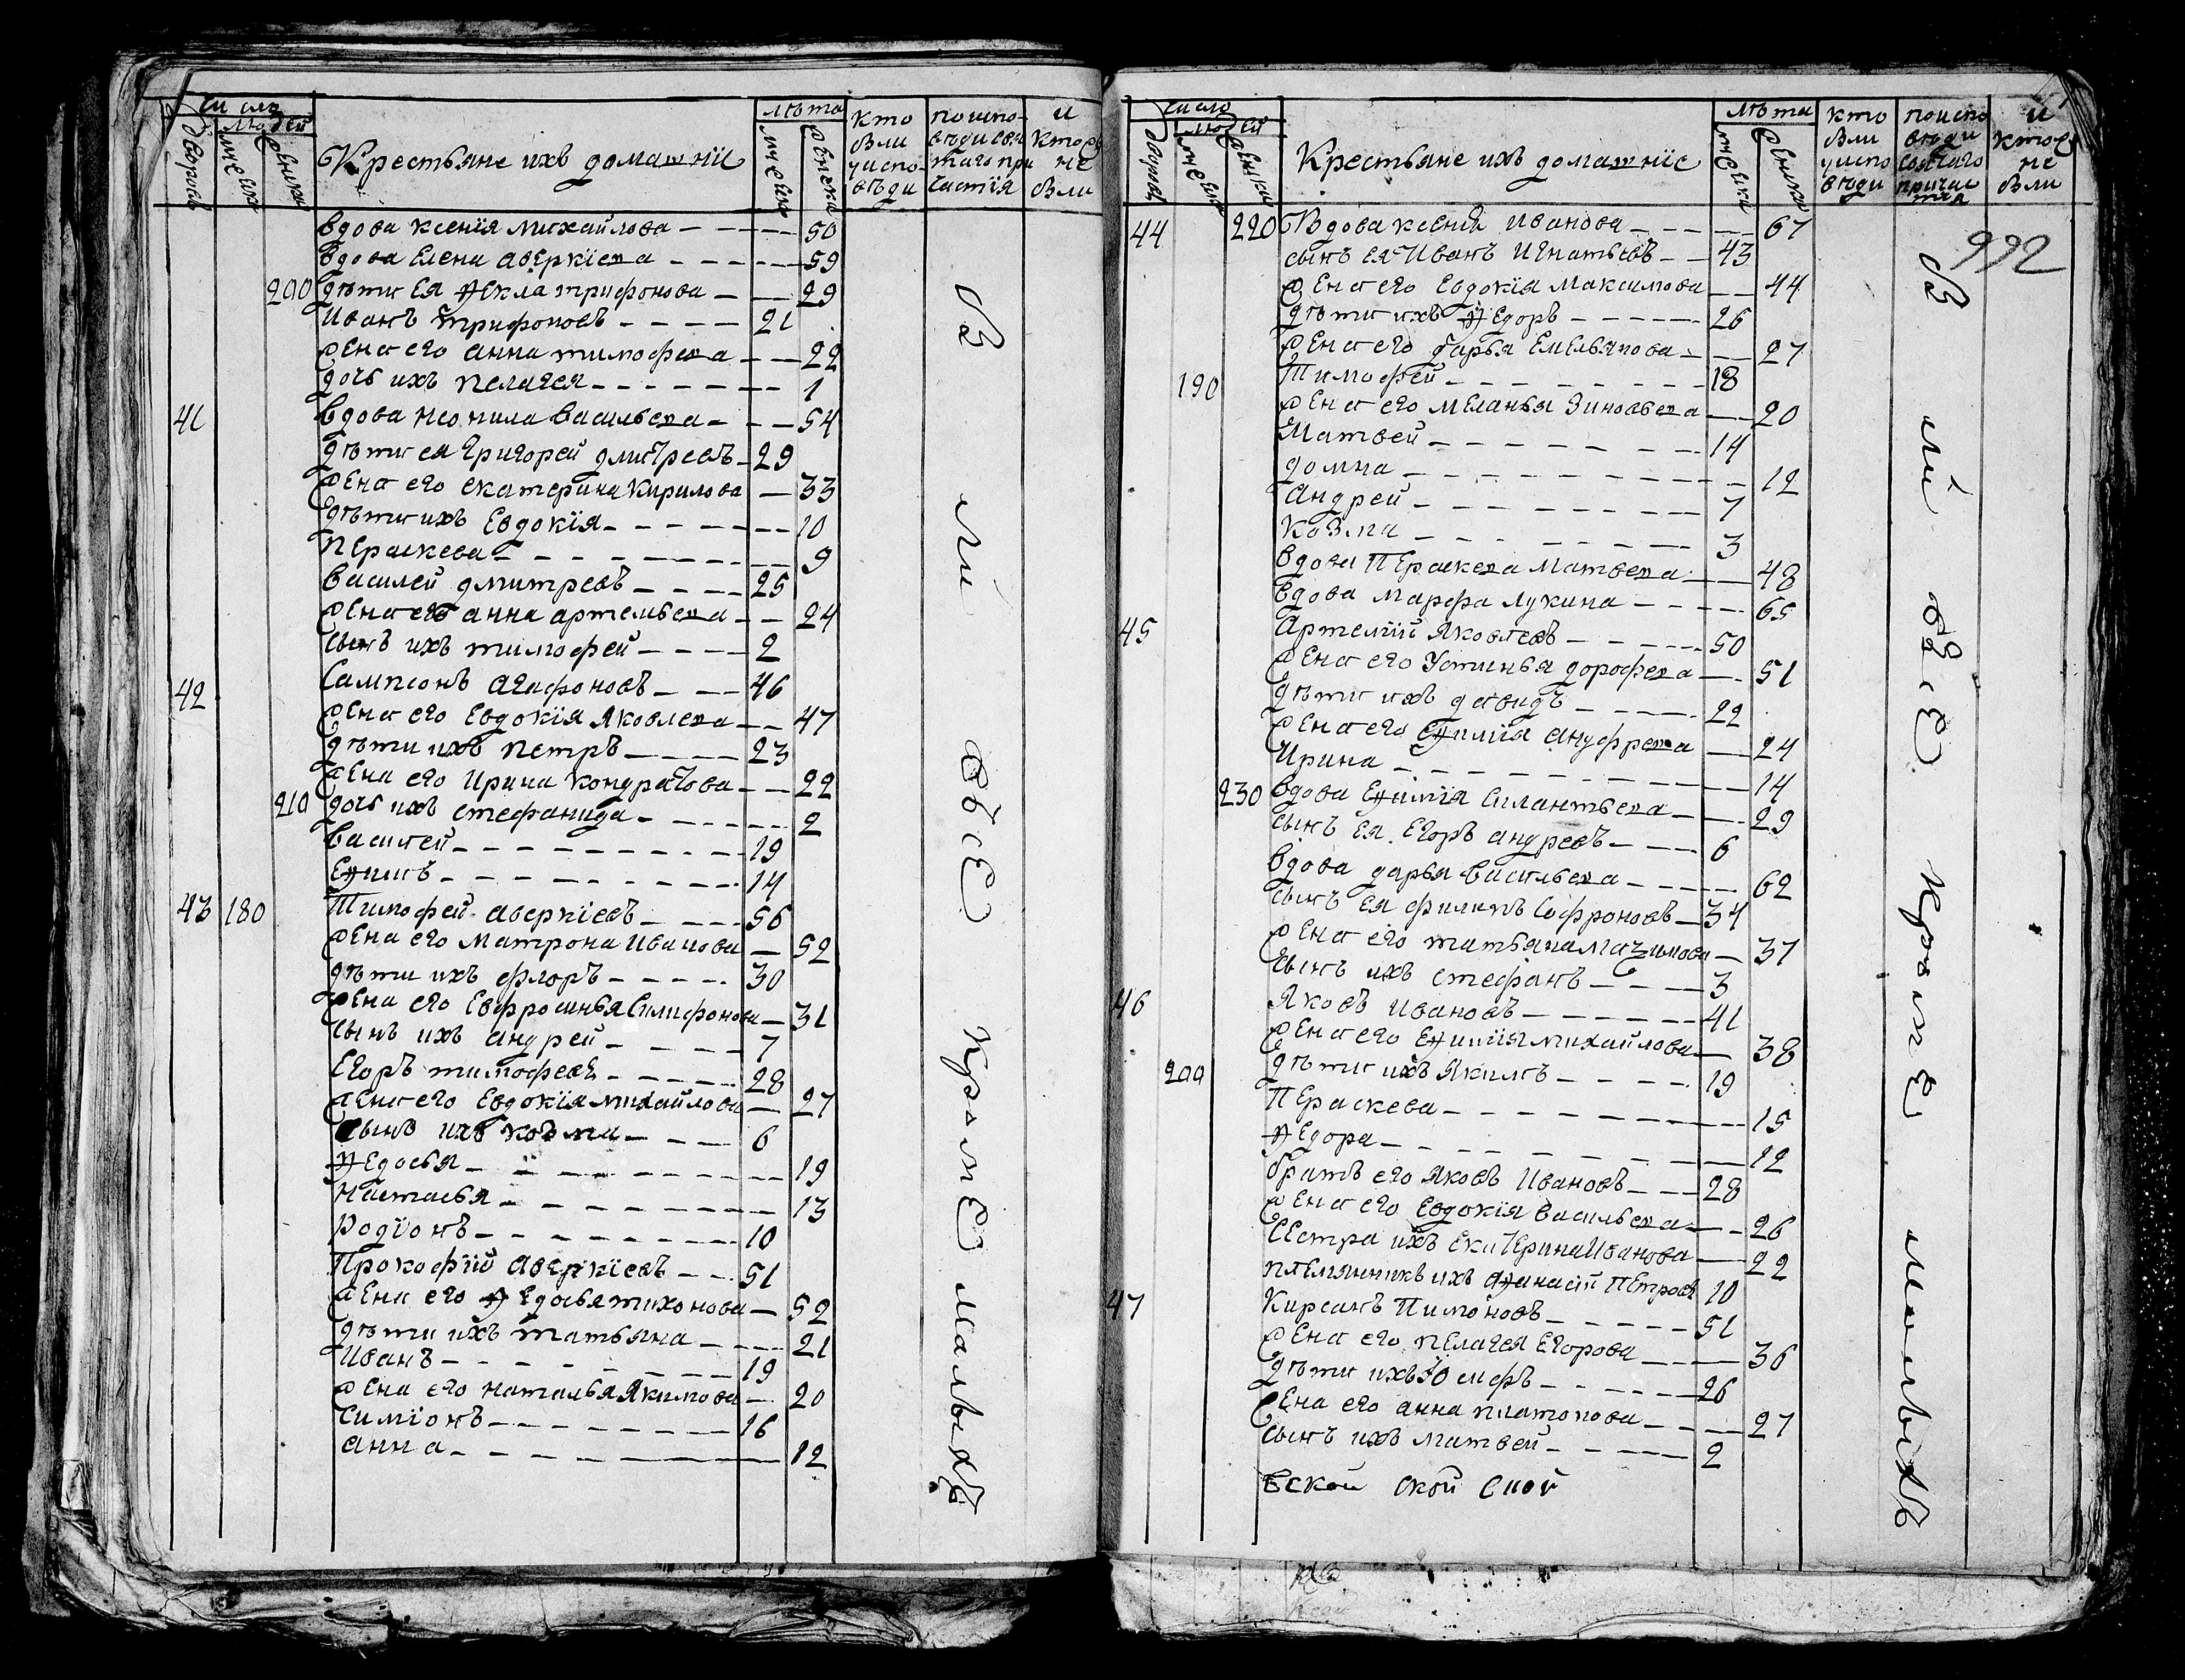 Число
людей
дворовъ
мужеска
женска
Крестьяне ихъ домашнїе
лѣта
мужеска
женска
кто
были
у испо-
вѣди
по испо-
вѣди свя
таго при
частїя
и
которы
не
были
вдова ксенїя михайлова – – – – 50
вдова Елена аверкїева – – – – – 59
200 дѣти Ея Ѳекла трифонова – – 29
Иванъ трифоновъ – – – – 21
жена его анна тимофеева – – 22
дочь ихъ пелагея – – – – – – – 1
41 вдова неонила васильева – – – 54
дѣти ея григорей дмитревъ – 29
жена его екатерина кирилова – 33
дѣти ихъ Евдокїя – – – – – – 10
Пераскева – – – – – – – 9
василей дмитревъ – – – – 25
жена его анна артемьева – – 24
сынъ ихъ тимофей – – – – 2
42 Сампсонъ агафоновъ – – – 46
жена его Евдокїя Яковлева – – 47
дѣти ихъ петръ – – – – 23
жена его Ирина кондратова – – 22
210 дочь ихъ стефанида – – – – – 2
василей – – – – – – – – – 19
Еѳимъ – – – – – – – – – 14
43 180 Тимофей аверкїевъ – – – – 56
жена его Матрона Иванова – 52
дѣти ихъ флоръ – – – – – 30
жена его Евфросинья Силифонова – 31
сынъ ихъ андрей – – – – – 7
Егоръ тимофеевъ – – – – – 28
жена его Евдокїя михайлова – 27
сынъ ихъ козма – – – – 6
Ѳедосья – – – – – – – – – 19
Настасья – – – – – – – – – 13
Родїонъ – – – – – – – – 10
Прокофїй аверкїевъ – – – 51
жена его Ѳедосья тихонова – 52
дѣти ихъ татьяна – – – – 21
Иванъ – – – – – – – – 19
жена его наталья Якимова – 20
Симїонъ – – – – – – – – 16
анна – – – – – – – – – – 12
Бы
ли
всѣ
кромѣ
малыхъ
Число
людей
дворовъ
мужеска
женска
Крестьяне ихъ домашнїе
лѣта
мужеска
женска
кто
были
у испо
вѣди
по испо
вѣди
святаго
причас
тїя
и
кторы
не
были
992
44 220 Вдова ксенїя Иванова – – – – – 67
сынъ ея Иванъ Игнатьевъ – – 43
жена его Евдокїя Максимова – – 44
дѣти ихъ Ѳедоръ – – – – – – 26
жена его Дарья Емельянова – – 27
190 Тимофей – – – – – – – – 18
жена его Меланья Зиновьева – – 20
Матвей – – – – – – – 14
домна – – – – – – – – – 12
андрей – – – – – – – – 7
козма – – – – – – – – 3
вдова Пераскева Матвеева – – 48
вдова марфа лукина – – – – – 65
45 Артемїй Яковлевъ – – – – – 50
жена его Устинья дорофеева – – 51
дѣти ихъ давидъ – – – – – 22
жена его Еѳимїя ануфреева – – 24
Ирина – – – – – – – – – 14
230 вдова Еѳимїя Силантьева – – – 29
сынъ ея Егоръ андревъ – – – – 6
вдова дарья васильева – – – – – 62
сынъ ея филипъ Софроновъ – 34
жена его татьяна мазимова – 37
сынъ ихъ стефанъ – – – – 3
46 Яковъ Ивановъ – – – – – – 41
жена его Еѳимїя михайлова – 38
200 дѣти ихъ Якимъ – – – – – 19
Пераскева – – – – – – – – – 15
Ѳедора – – – – – – – – – – 12
братъ его Яковъ Ивановъ – – – 28
жена его Евдокїя васильева – – 26
сестра ихъ Екатерина Иванова – 22
племянникъ ихъ аѳанасїй Петровъ 10
47 Кирсанъ Пимоновъ – – – – – 51
жена его пелагея Егорова – – – 36
дѣти ихъ Їосифъ – – – – – – 26
жена его анна платонова – – – 27
сынъ ихъ матвей – – – – – 2
Бы
ли
всѣ
кромѣ
малыхъ